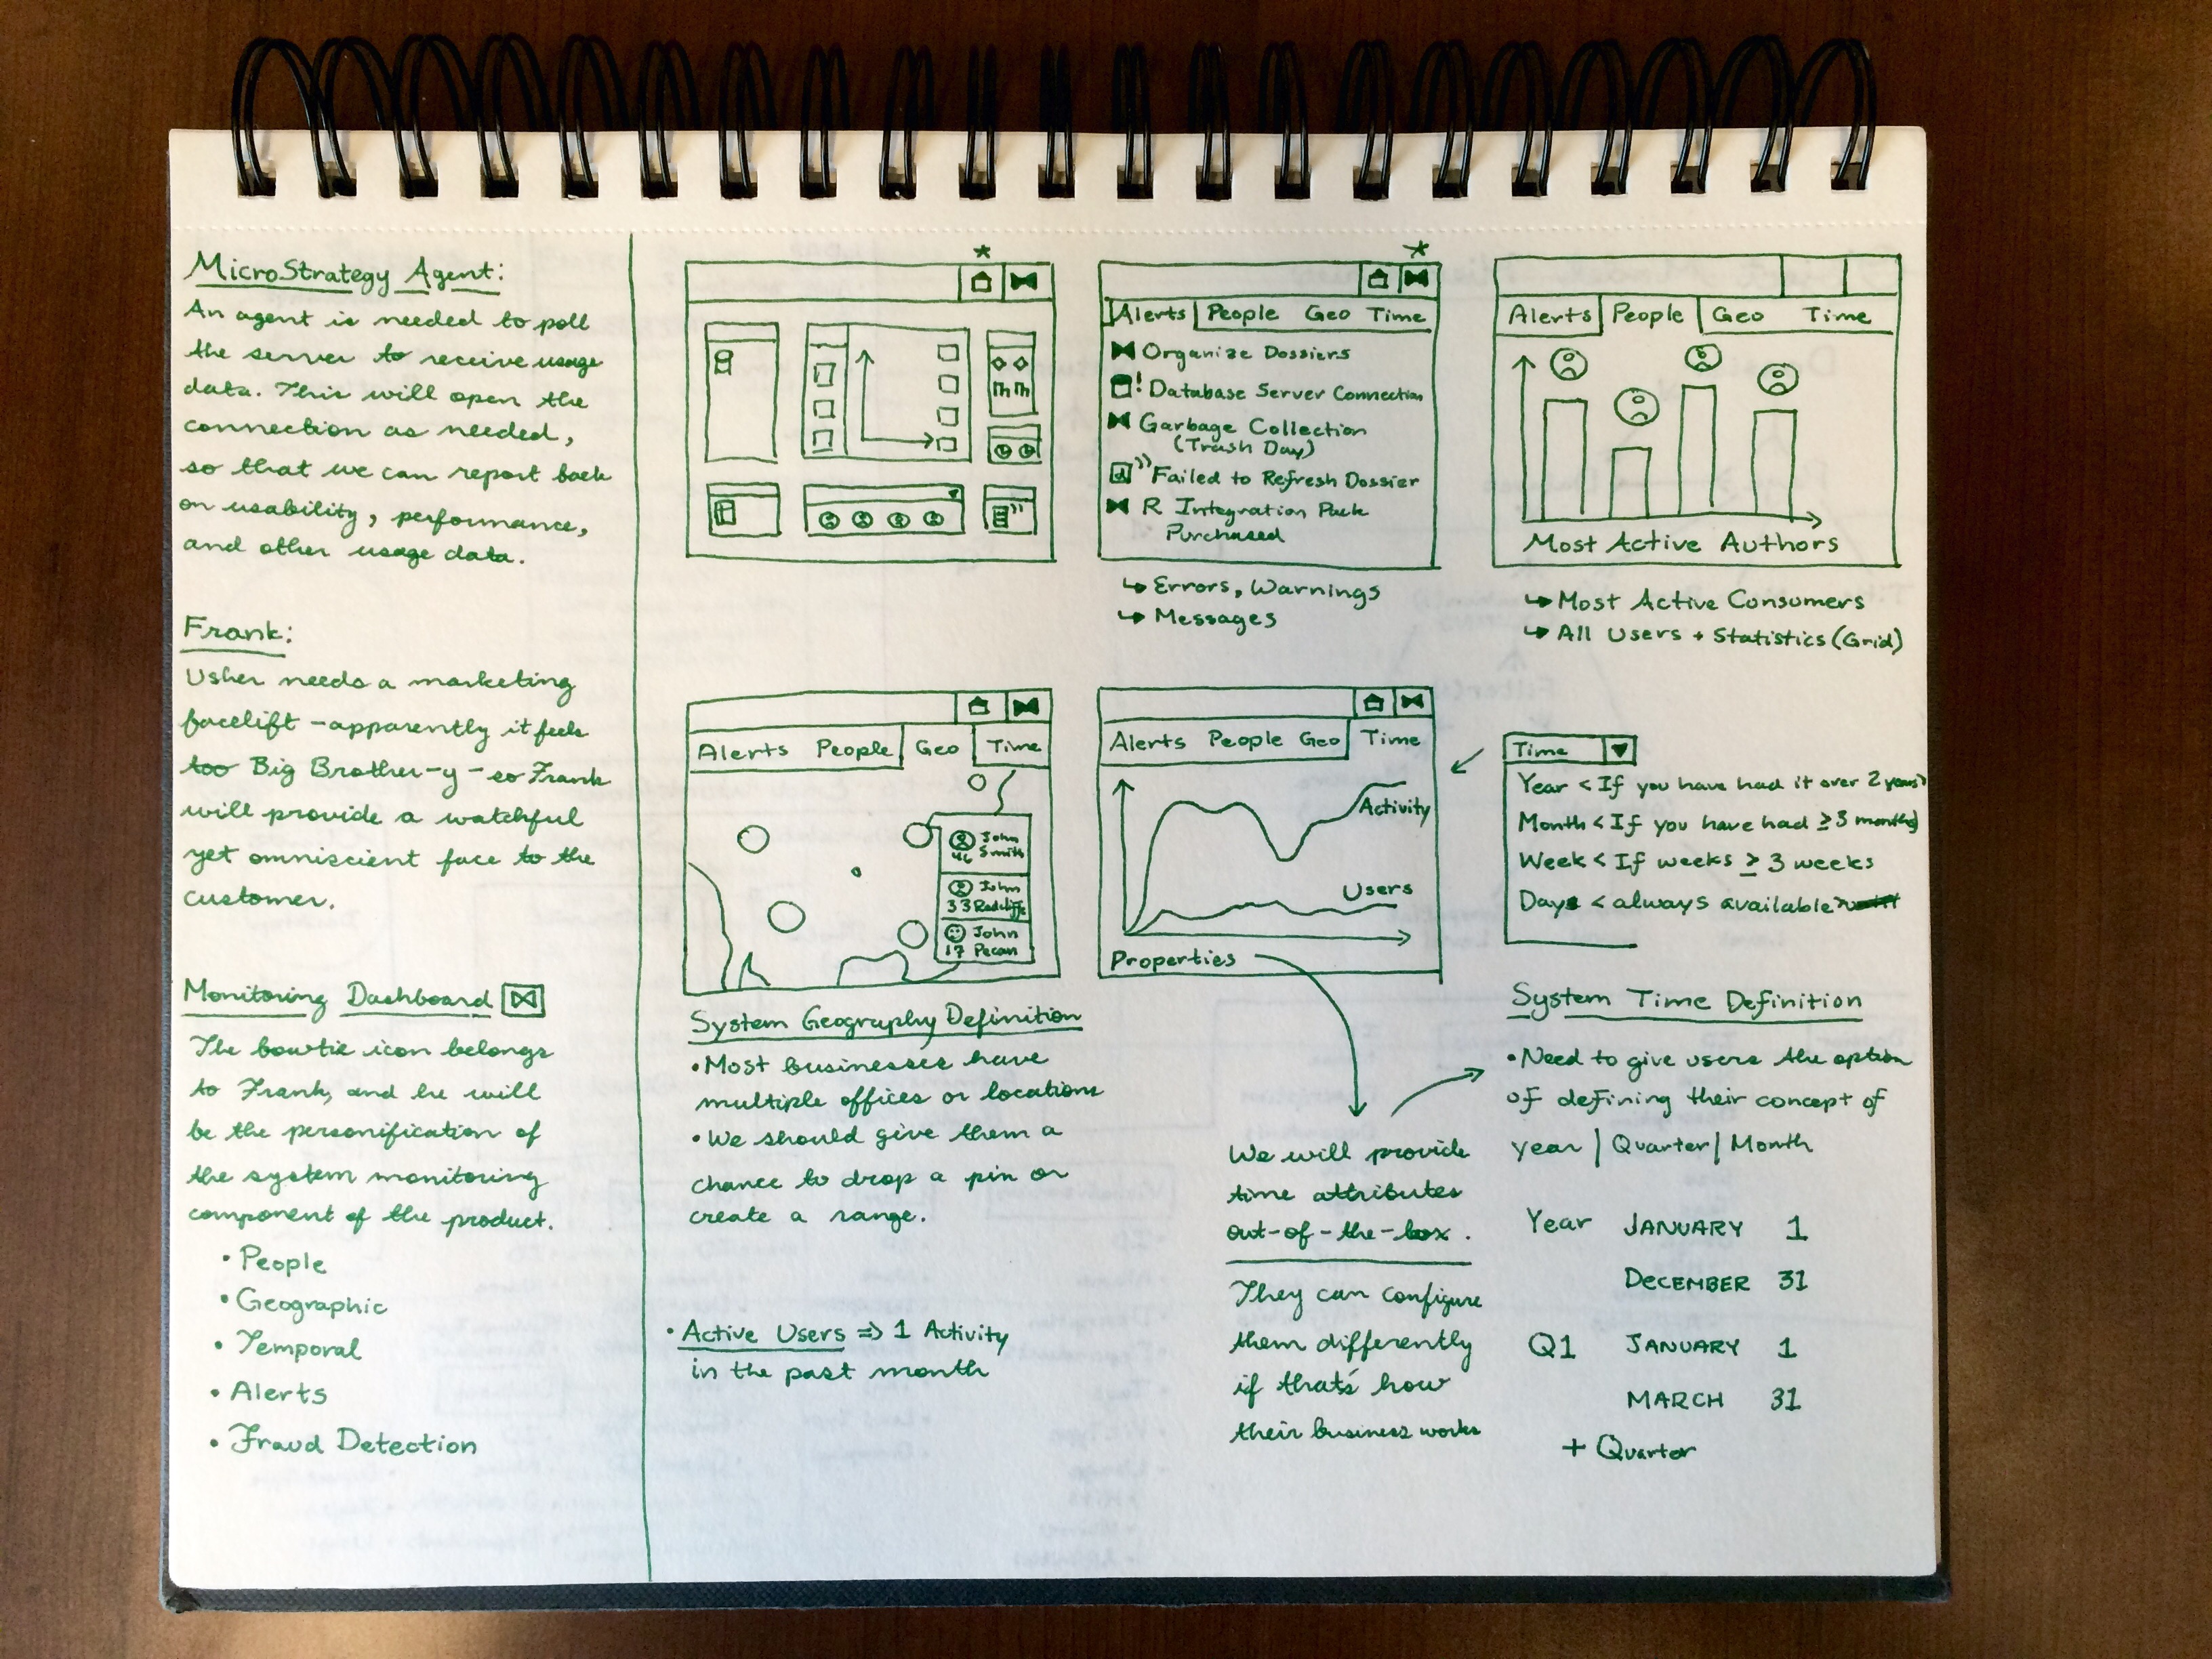 MicroStrategy Agent:
An agent is needed to poll
the server to receive usage
data. This will open the
connection as needed,
so that we can report back
on usability, performance,
and other usage data.
Frank:
Usher needs a marketing
facelift - apparently it feels
too Big Brother-y - so Frank
will provide a watchful
yet omniscient face to the
customer.
Monitoring Dashboard
The bowtie icon belongs
to Frank, and he will
be the personification of
the system monitoring
component of the product.
• People
• Geographic
• Temporal
• Alerts
• Fraud Detection
Alerts People Geo Time
Organize Dossiers
! Database Server Connection
Garbage Collection
(Trash Day)
Failed to Refresh Dossier
R Integration Pack
Purchased
↳ Errors, Warnings
↳ Messages
Alerts People Geo Time
Most Active Authors
↳ Most Active Consumers
↳ All Users + Statistics (Grid)
Alerts People Geo Time
John
46 Smith
John
33 Radcliffe
John
17 Pecan
System Geography Definition
• Most businesses have
multiple offices or locations
• We should give them a
chance to drop a pin or
create a range.
• Active Users => 1 Activity
in the past month
Alerts People Geo Time
Activity
Users
Properties
We will provide
time attributes
out-of-the-box.
They can configure
them differently
if that's how
their business works
Time
Year < If you have had it over 2 years>
Month < If you have had ≥ 3 months>
Week < If weeks ≥ 3 weeks
Days < always available>
System Time Definition
• Need to give users the option
of defining their concept of
year | Quarter | Month
Year JANUARY 1
DECEMBER 31
Q1 JANUARY 1
MARCH 31
+ Quarter